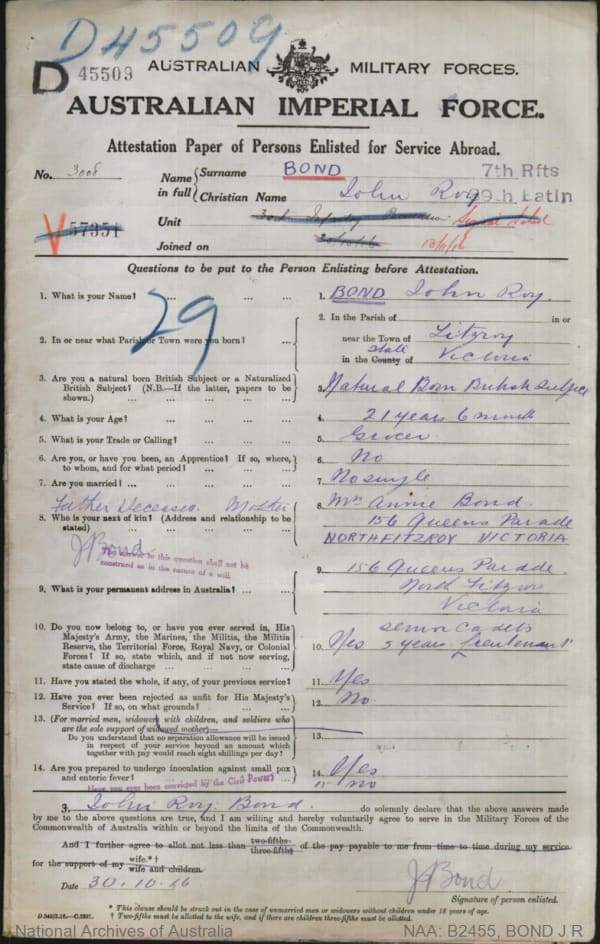 D45509
D 45509
AUSTRALIAN MILITARY FORCES.
AUSTRALIAN IMPERIAL FORCE.
Attestation Paper of Persons Enlisted for Service Abroad.
No. 3008
Name in full { Surname BOND
Christian Name John Roy
7th Rfts
29th Batin
Unit
V 57351
Joined on 30/10/16
Questions to be put to the Person Enlisting before Attestation.
29
1. What is your Name? ... ... ... 1. BOND John Roy.
2. In or near what Parish or Town were you born? ... 2. In the Parish of in or
near the Town of Fitzroy
in the County of state Victoria
3. Are you a natural born British Subject or a Naturalized
British Subject? (N.B.—If the latter, papers to be
shown.) ... ... ... 3. Natural Born British Subject
4. What is your Age? ... ... ... 4. 21 years 6 month
5. What is your Trade or Calling? ... ... 5. Grocer
6. Are you, or have you been, an Apprentice? If so, where,
to whom, and for what period? ... ... 6. No
7. Are you married? ... ... ... 7. No single
Father Deceased. Mother
8. Who is your next of kin? (Address and relationship to be
stated) 8. Mrs Annie Bond.
156 Queens Parade
NORTH FITZROY VICTORIA
J Bond
The answer to this question shall not be
construed as in the nature of a will.
9. What is your permanent address in Australia? ... 9. 156 Queens Parade
North Fitzroy
Victoria
10. Do you now belong to, or have you ever served in, His
Majesty's Army, the Marines, the Militia, the Militia
Reserve, the Territorial Force, Royal Navy, or Colonial
Forces? If so, state which, and if not now serving,
state cause of discharge ... ... ... 10. Yes senior Cadets
3 years Lieutenant
11. Have you stated the whole, if any, of your previous service? 11. Yes
12. Have you ever been rejected as unfit for His Majesty's
Service? If so, on what grounds? ... ... 12. No.
13. (For married men, widowers with children, and soldiers who
are the sole support of widowed mother)—
Do you understand that no separation allowance will be issued
in respect of your service beyond an amount which
together with pay would reach eight shillings per day? 13.
14. Are you prepared to undergo inoculation against small pox
and enteric fever? ... ... ... 14. Yes
Have you ever been convicted by the Civil Power? 15 no
I, John Roy Bond. do solemnly declare that the above answers made
by me to the above questions are true, and I am willing and hereby voluntarily agree to serve in the Military Forces of the
Commonwealth of Australia within or beyond the limits of the Commonwealth.
And I further agree to allot not less than two-fifths three-fifths of the pay payable to me from time to time during my service
for the support of my wife.*† wife and children.
Date 30.10.16
J Bond
Signature of person enlisted.
* This clause should be struck out in the case of unmarried men or widowers without children under 18 years of age.
† Two-fifths must be allotted to the wife, and if there are children three-fifths must be allotted.
National Archives of Australia
NAA: B2455, BOND J R